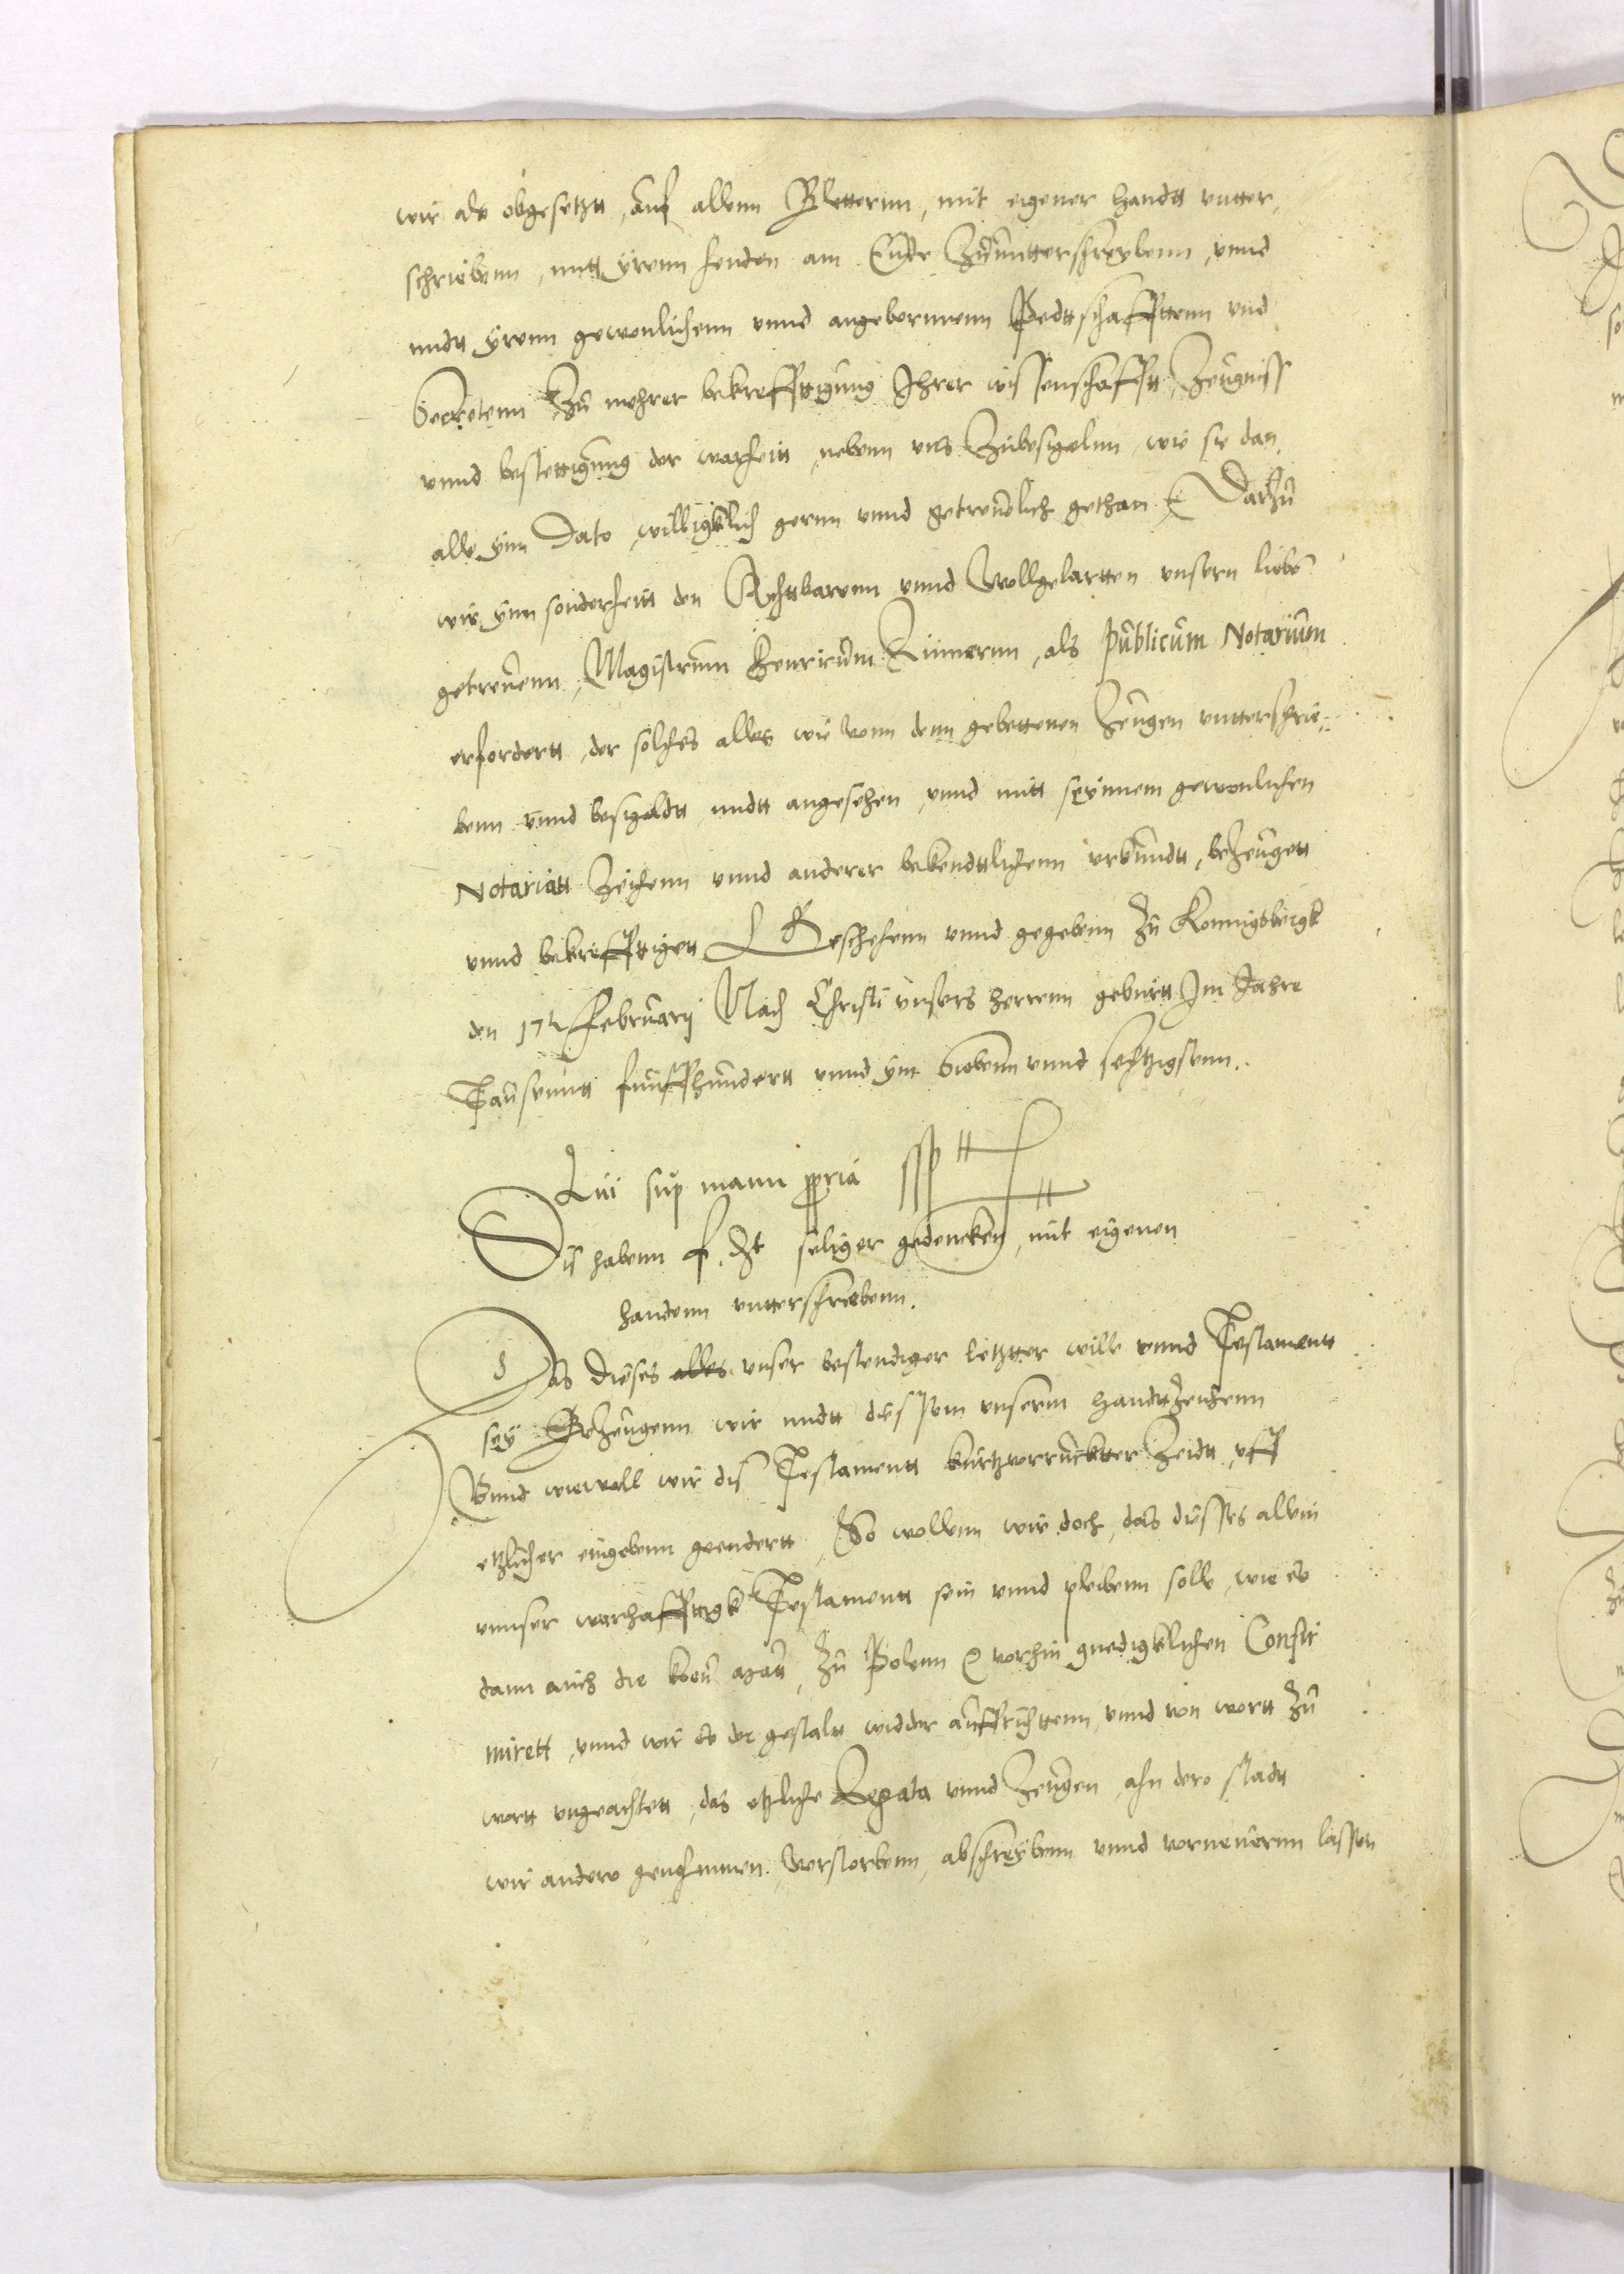 wir als obgesetzt, auf allenn Bletternn, mit eigener handtt unter,
schriebenn, mitt yrenn henden am Ende Zuunterschreybenn, unnd
midtt yrenn gewonlichenn unnd angebornnenn Pedttschafftenn und
Secretenn Zu mehrer bekrefftigung Ihrer wissenschafftt, Zeugniss
unnd bestettigung der warheitt, nebenn uns Zubesigelnn, wie sie dan
alle ynn Dato, willigklich gernn unnd getreulich gethan, Darzu
wir ynn sonderheitt den Achttbarenn unnd Wollgelartten unsern lieben
getreuenn, Magistrum Henricum Zimmernn, als Publicum Notarium
erfordertt, der solches alles wie vonn denn gebettenen Zeugen unterschrie„
benn unnd besigeldtt, midtt angesehen, unnd mitt seynnem gewonlichen
Notariatt Zeichenn unnd anderer bekendttlichenn urkundtt, bezeugett
unnd bekrefftigett Geschehenn unnd gegebenn zu Konnigsbergk
den 17t Februarij Nach Christi unsers herrenn geburtt Im Jahre
Tausenntt funffhundertt unnd ym Siebenn unnd sechtzigstenn..
sup manu ppria sspt
Dis habenn f. Dt seliger gedencken, mit eigenen
handenn unterschriebenn.
Das dieses alles unser bestendiger letzter wille unnd Testamentt
sey Bezeugenn wir midtt diessem unserm handttzeichenn
Unnd wiewoll wir dis Testamentt kurtzverruckter Zeidtt, uff
etzlicher eingebenn geendertt, So wollenn wir doch, das diesses allein
unnser warhafftigk Testamentt sein unnd pleibenn solle, wie es
dann auch die zu Polenn vorhin gnedigklichen Confir
mirett, unnd wir es der gestaltt widder auffrichttenn, unnd von wortt zu
wortt ungeachtett, das etzliche Legata unnd Zeugen, ahn dero stadtt
wir andere genohmmen, verstorbenn, abschreybenn unnd vorneuernn lassen